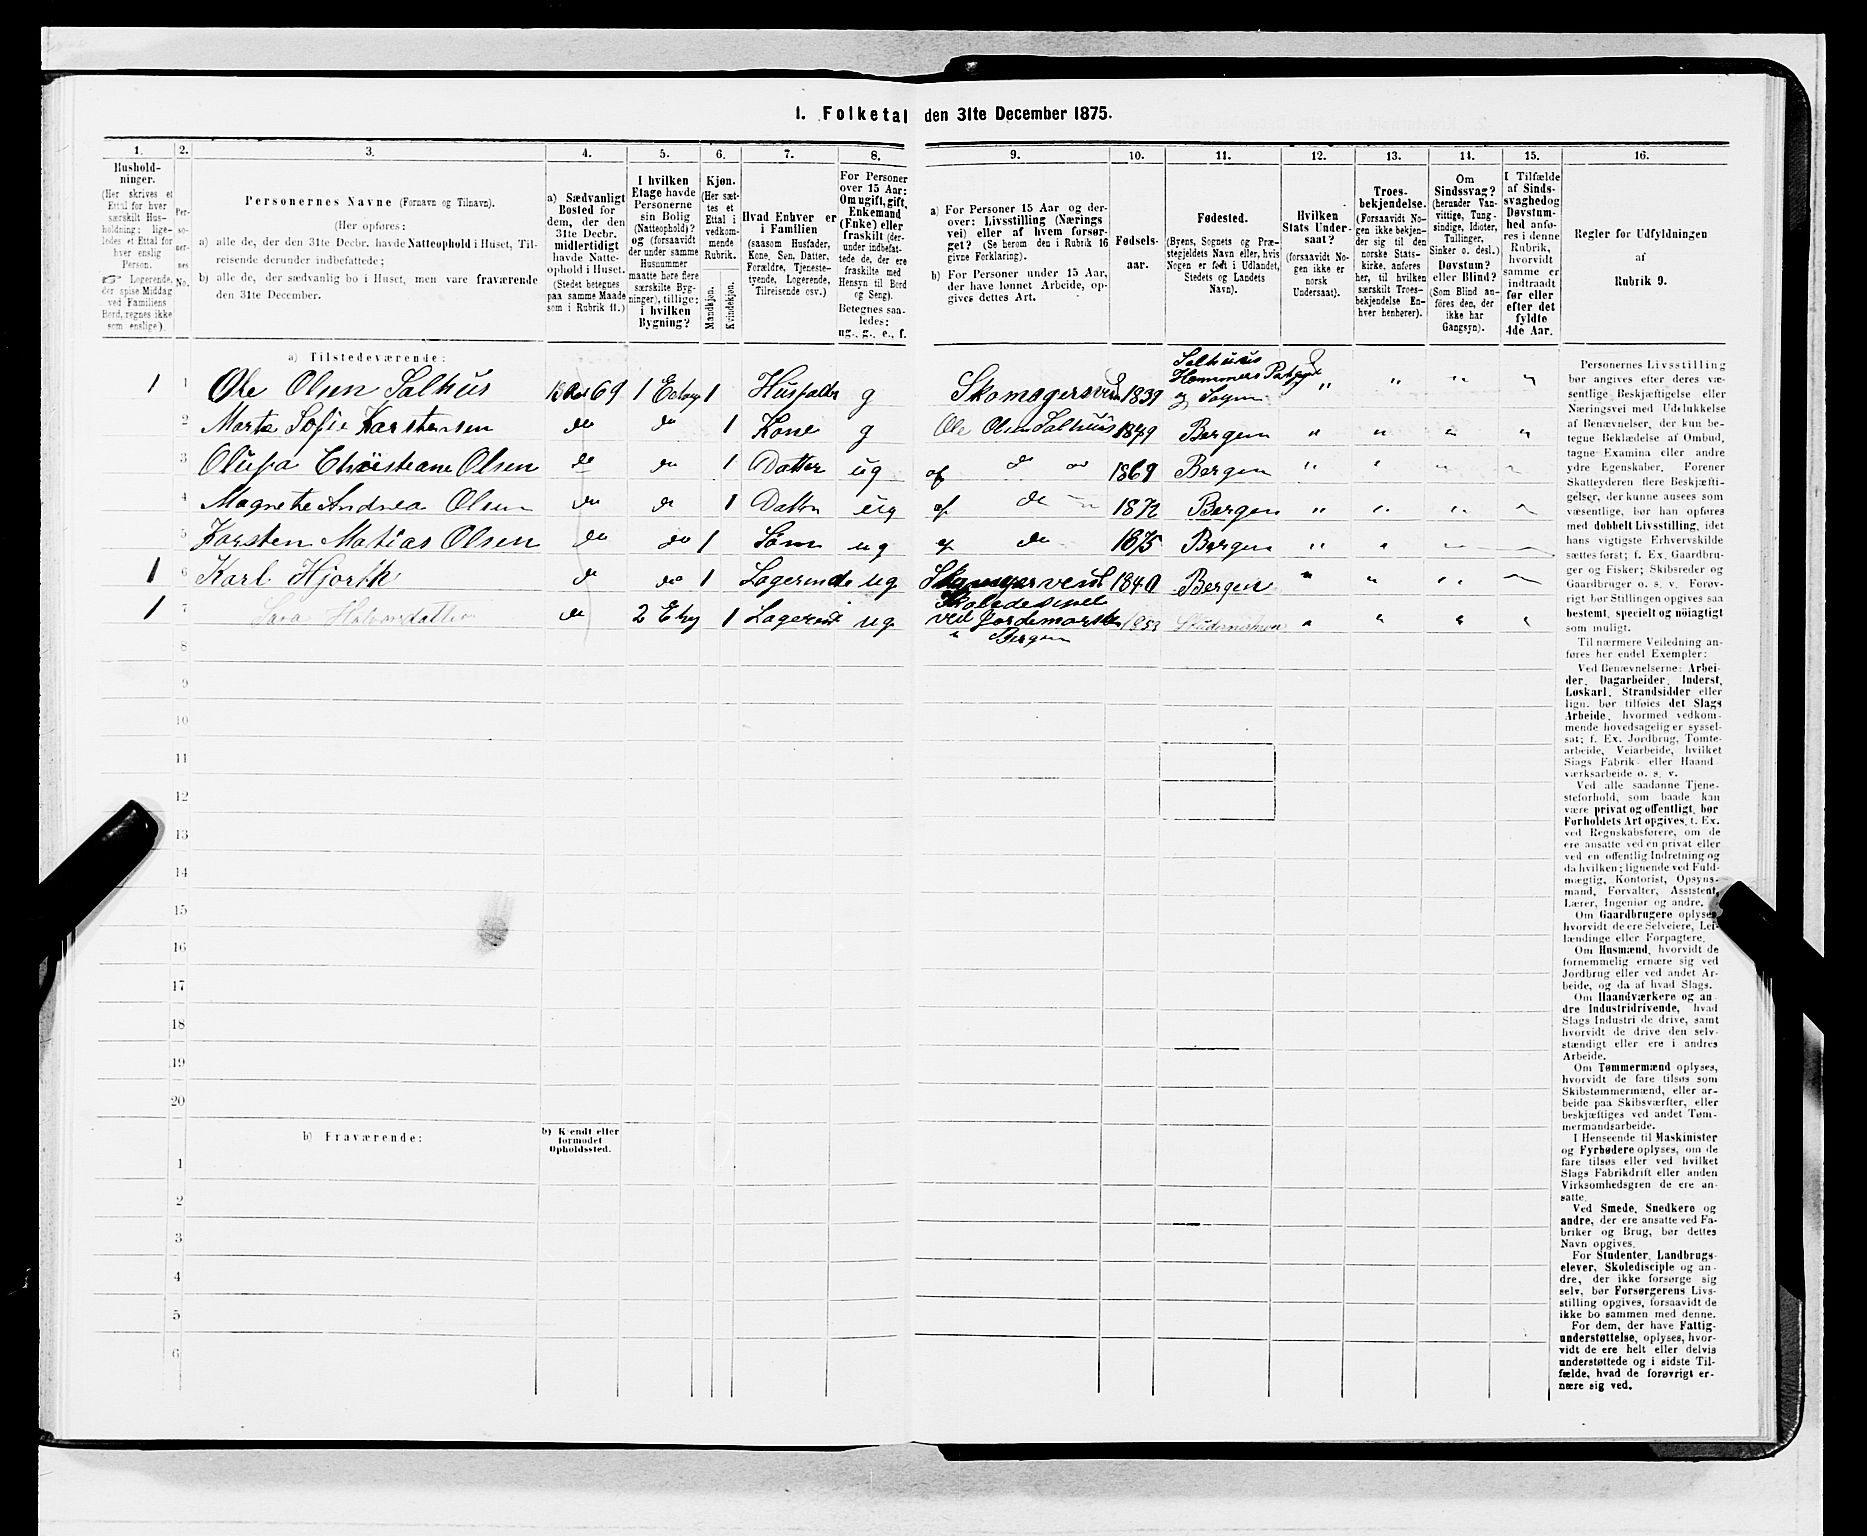 1. Folketal den 31te December 1875.
1.
2.
3.
4.
5.
6.
7.
8.
9.
10.
11.
12.
13.
14.
15.
16.
Hushold-
ninger.
(Her skrives et
Ettal for hver
særskilt Hus-
holdning; lige-
ledes et Ettal for
hver enslig
Person.
☞ Logerende,
der spise Middag
ved Familiens
Bord, regnes ikke
som enslige).
Per-
so-
ner-
nes
No.
Personernes Navne (Fornavn og Tilnavn).
(Her opføres:
a) alle de, der den 31te Decbr. havde Natteophold i Huset, Til-
reisende derunder indbefattede;
b) alle de, der sædvanlig bo i Huset, men vare fraværende
den 31te December.
a) Sædvanligt
Bosted for
dem, der den
31te Decbr.
midlertidigt
havde Natte-
ophold i Huset.
(Stedet betegnes
paa samme Maade
som i Rubrik 11.)
I hvilken
Etage havde
Personerne
sin Bolig
(Natteophold)?
og (forsaavidt
der under samme
Husnummer
maatte høre flere
særskilte Byg-
ninger), tillige:
i hvilken
Bygning?
Kjøn.
(Her sæt-
tes et
Ettal i
vedkom-
mende
Rubrik.
Mandkjøn.
Kvindekjøn.
Hvad Enhver er
i Familien
(saasom Husfader,
Kone, Søn, Datter,
Forældre, Tjeneste-
tyende, Logerende,
Tilreisende osv.)
For Personer
over 15 Aar:
Om ugift, gift,
Enkemand
(Enke) eller
fraskilt (der-
under indbefat-
tede de, der ere
fraskilte med
Hensyn til Bord
og Seng).
Betegnes saa-
ledes:
ug., g., e., f.
a) For Personer 15 Aar og der-
over: Livsstilling (Nærings
vei) eller af hvem forsør-
get? (Se herom den i Rubrik 16
givne Forklaring).
b) For Personer under 15 Aar,
der have lønnet Arbeide, op-
gives dettes Art.
Fødsels-
aar.
Fødested.
(Byens, Sognets og Præ-
stegjeldets Navn eller, hvis
Nogen er født i Udlandet,
Stedets og Landets
Navn).
Hvilken
Stats Under-
saat?
(forsaavidt No-
gen ikke er
norsk
Undersaat).
Troes-
bekjendelse.
(Forsaavidt No-
gen ikke bekjen-
der sig til den
norske Stats-
kirke, anføres
her, til hvilken
særskilt Troes-
bekjendelse En-
hver henhører).
Om
Sindssvag?
(herunder Van-
vittige, Tung-
sindige, Idioter,
Tullinger,
Sinker o. desl.)
Døvstum?
eller Blind?
(Som Blind an-
føres den, der
ikke har
Gangsyn).
I Tilfælde
af Sinds-
svaghed og
Døvstum-
hed anfø-
res i denne
Rubrik,
hvorvidt
samme er
indtraadt
før eller
efter det
fyldte
4de Aar.
Regler for Udfyldningen
af
Rubrik 9.
a) Tilstedeværende:
1 1 Ole Olsen Salhus 69 1 Etag 1 Husfader g 1839 Salhuus
2 Marta Sofie Karstensen do do 1 Kone g Ole Olsen Salhuus 1849 Bergen " " " "
3 Olufa Christiane Olsen do do 1 Datter ug af do 1869 Bergen " " " "
4 Magnete Andrea Olsen do do 1 Datter ug af do 1872 Bergen " " " "
5 Karsten Matias Olsen do do 1 Sønn ug af do 1875 Bergen " " " "
1 6 Karl Hjorth do do 1 Logerende ug 1840 Bergen " " " "
1 7 Sara Halvorsdatter do 2 Etag 1 Logerend ug ved Bergen 1853 " " " "
8
9
10
11
12
13
14
15
16
17
18
19
20
b) Fraværende:
b) Kjendt eller
formodet
Opholdssted.
1
2
3
4
5
6
Personernes Livsstilling
bør angives efter deres væ-
sentlige Beskjæftigelse eller
Næringsvei med Udelukkelse
af Benævnelser, der kun be-
tegne Beklædelse af Ombud,
tagne Examina eller andre
ydre Egenskaber. Forener
Skatteyderen flere Beskjæfti-
gelser, der kunne ansees som
væsentlige, bør han opføres
med dobbelt Livsstilling, idet
hans vigtigste Erhvervskilde
sættes først; f. Ex. Gaardbru-
ger og Fisker; Skibsreder og
Gaardbruger o. s. v. Forøv-
rigt bør Stillingen opgives saa
bestemt, specielt og nøiagtigt
som muligt.
Til nærmere Veiledning an-
føres her endel Exempler:
Ved Benævnelserne: Arbei-
der, Dagarbeider, Inderst,
Løskarl, Strandsidder eller
lign. bør tilføies det Slags
Arbeide, hvormed vedkom-
mende hovedsagelig er syssel-
sat; f. Ex. Jordbrug, Tomte-
arbeide, Veiarbeide, hvilket
Slags Fabrik- eller Haand
værksarbeide o. s. v.
Ved alle saadanne Tjene-
steforhold, som baade kan
være privat og offentligt, bør
Forholdets Art opgives, f. Ex.
ved Regnskabsførere, om de
ere ansatte ved en privat eller
ved en offentlig Indretning og
da hvilken; lignende ved Fuld-
mægtig, Kontorist, Opsyns-
mand, Forvalter, Assistent,
Lærer, Ingeniør og andre.
Om Gaardbrugere oplyses,
hvorvidt de ere Selveiere, Lei-
lændinge eller Forpagtere.
Om Husmænd, hvorvidt de
fornemmelig ernære sig ved
Jordbrug eller ved andet Ar-
beide, og da af hvad Slags.
Om Haandværkere og an-
dre Industridrivende, hvad
Slags Industri de drive, samt
hvorvidt de drive den selv-
stændigt eller ere i andres
Arbeide.
Om Tømmermænd oplyses,
hvorvidt de fare tilsøs som
Skibstømmermænd, eller ar-
beide paa Skibsværfter, eller
beskjæftiges ved andet Tøm-
mermandsarbeide.
I Henseende til Maskinister
og Fyrbødere oplyses, om de
fare tilsøs eller ved hvilket
Slags Fabrikdrift eller anden
Virksomhedsgren de ere an-
satte.
Ved Smede, Snedkere og
andre, der ere ansatte ved Fa-
briker og Brug, bør dettes
Navn opgives.
For Studenter, Landbrugs-
elever, Skoledisciple og an-
dre, der ikke forsørge sig
selv, bør Forsørgerens Livs-
stilling opgives, forsaavidt de
ikke bo sammen med denne.
For dem, der have Fattig-
understøttelse, oplyses, hvor-
vidt de ere helt eller delvis
understøttede og i sidste Til-
fælde, hvad de forøvrigt er-
nære sig ved.